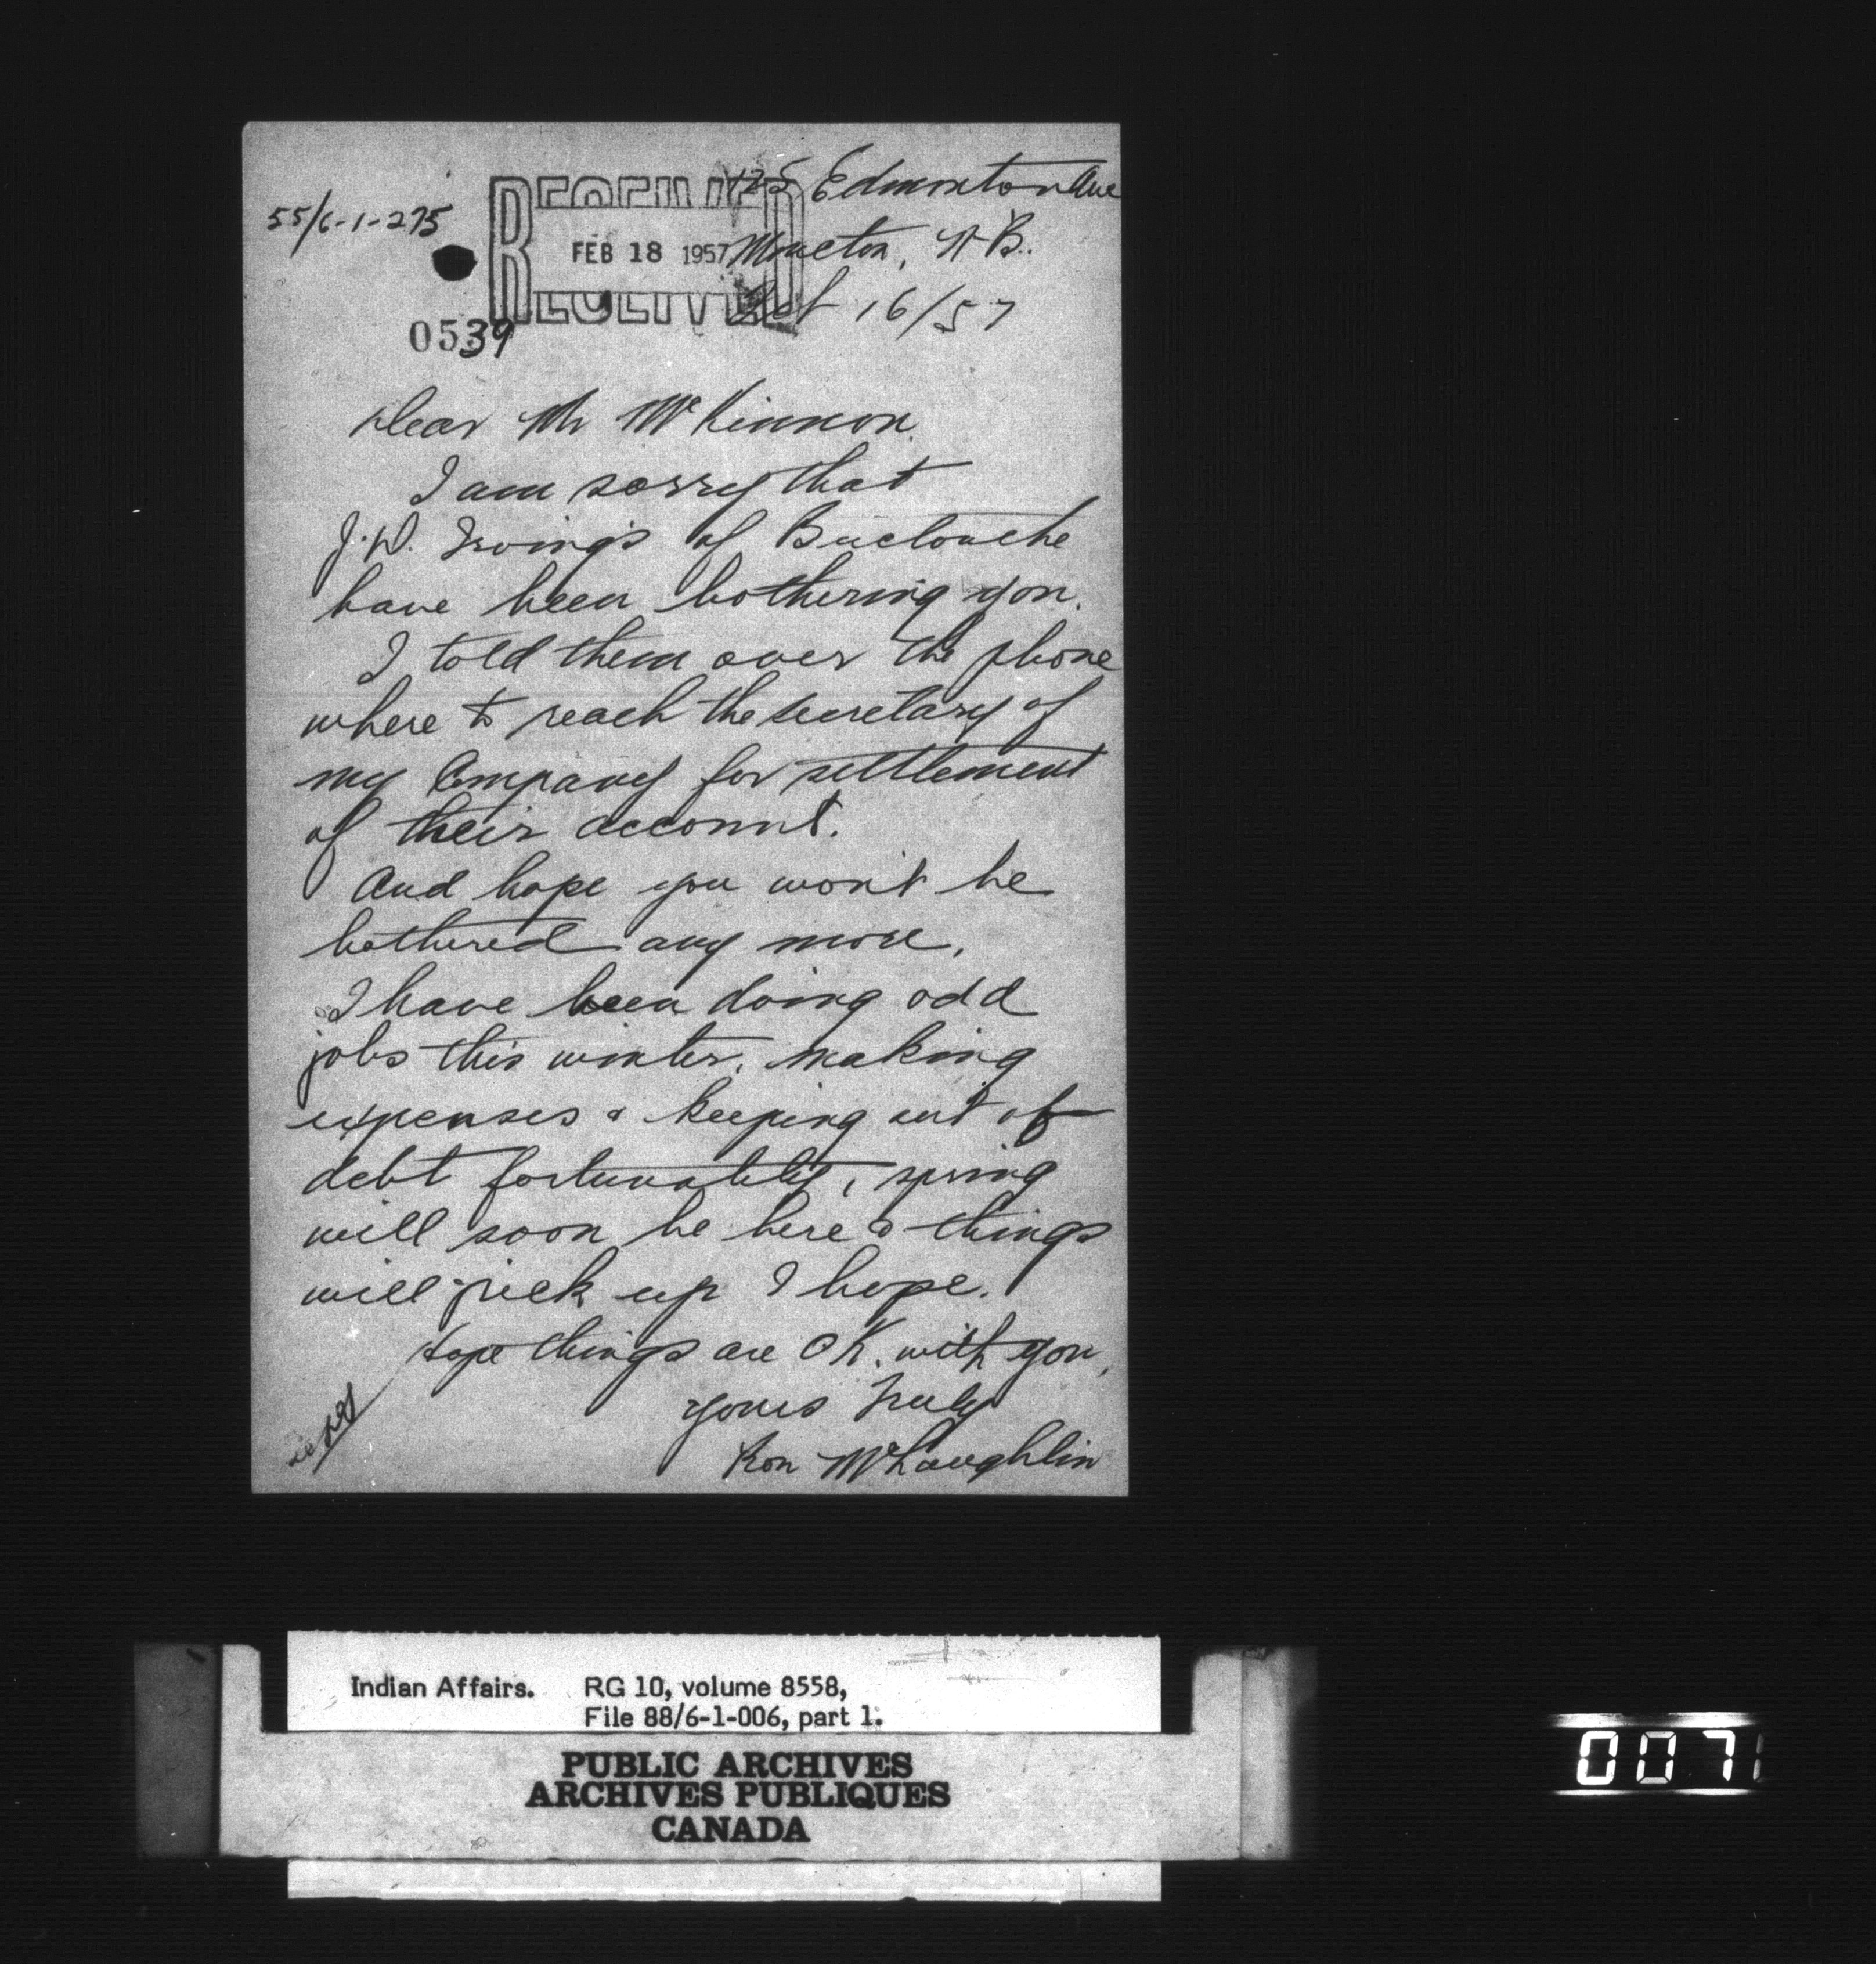 55/6-1-275
RECEIVED
FEB 18 1957
0539
125 Edmonton Ave
Moncton, N B.
Feb 16/57
Dear Mr McKinnon.
I am sorry that
J.D. Irving's of Buctouche
have been bothering you.
I told them over the phone
where to reach the secretary of
my Company for settlement
of their account.
And hope you won't be
bothered any more.
I have been doing odd
jobs this winter, making
expenses & keeping out of
debt fortunately, spring
will soon be here & things
will pick up I hope.
Hope things are OK. with you,
yours truly
Ron McLaughlin
Indian Affairs. RG 10, volume 8558,
File 88/6-1-006, part 1.
PUBLIC ARCHIVES
ARCHIVES PUBLIQUES
CANADA
0071